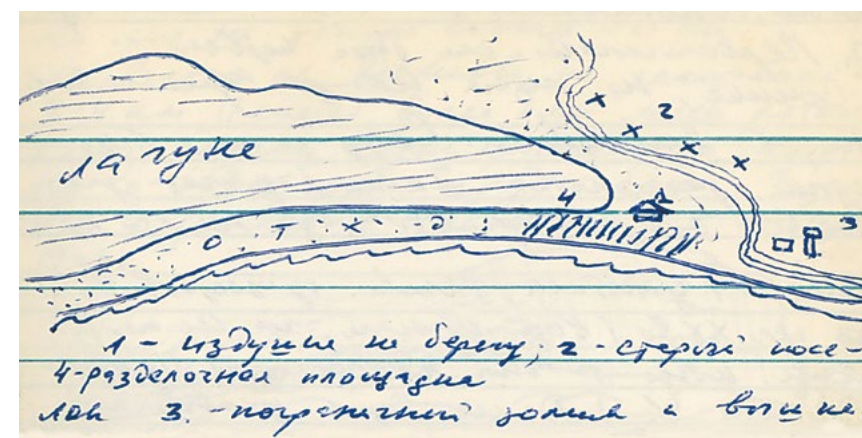 2
лагуна
4
3
1 – избушка на берегу; 2 – старый посе-
4-разделочная площадка
лок 3. - пограничный домик и вышка